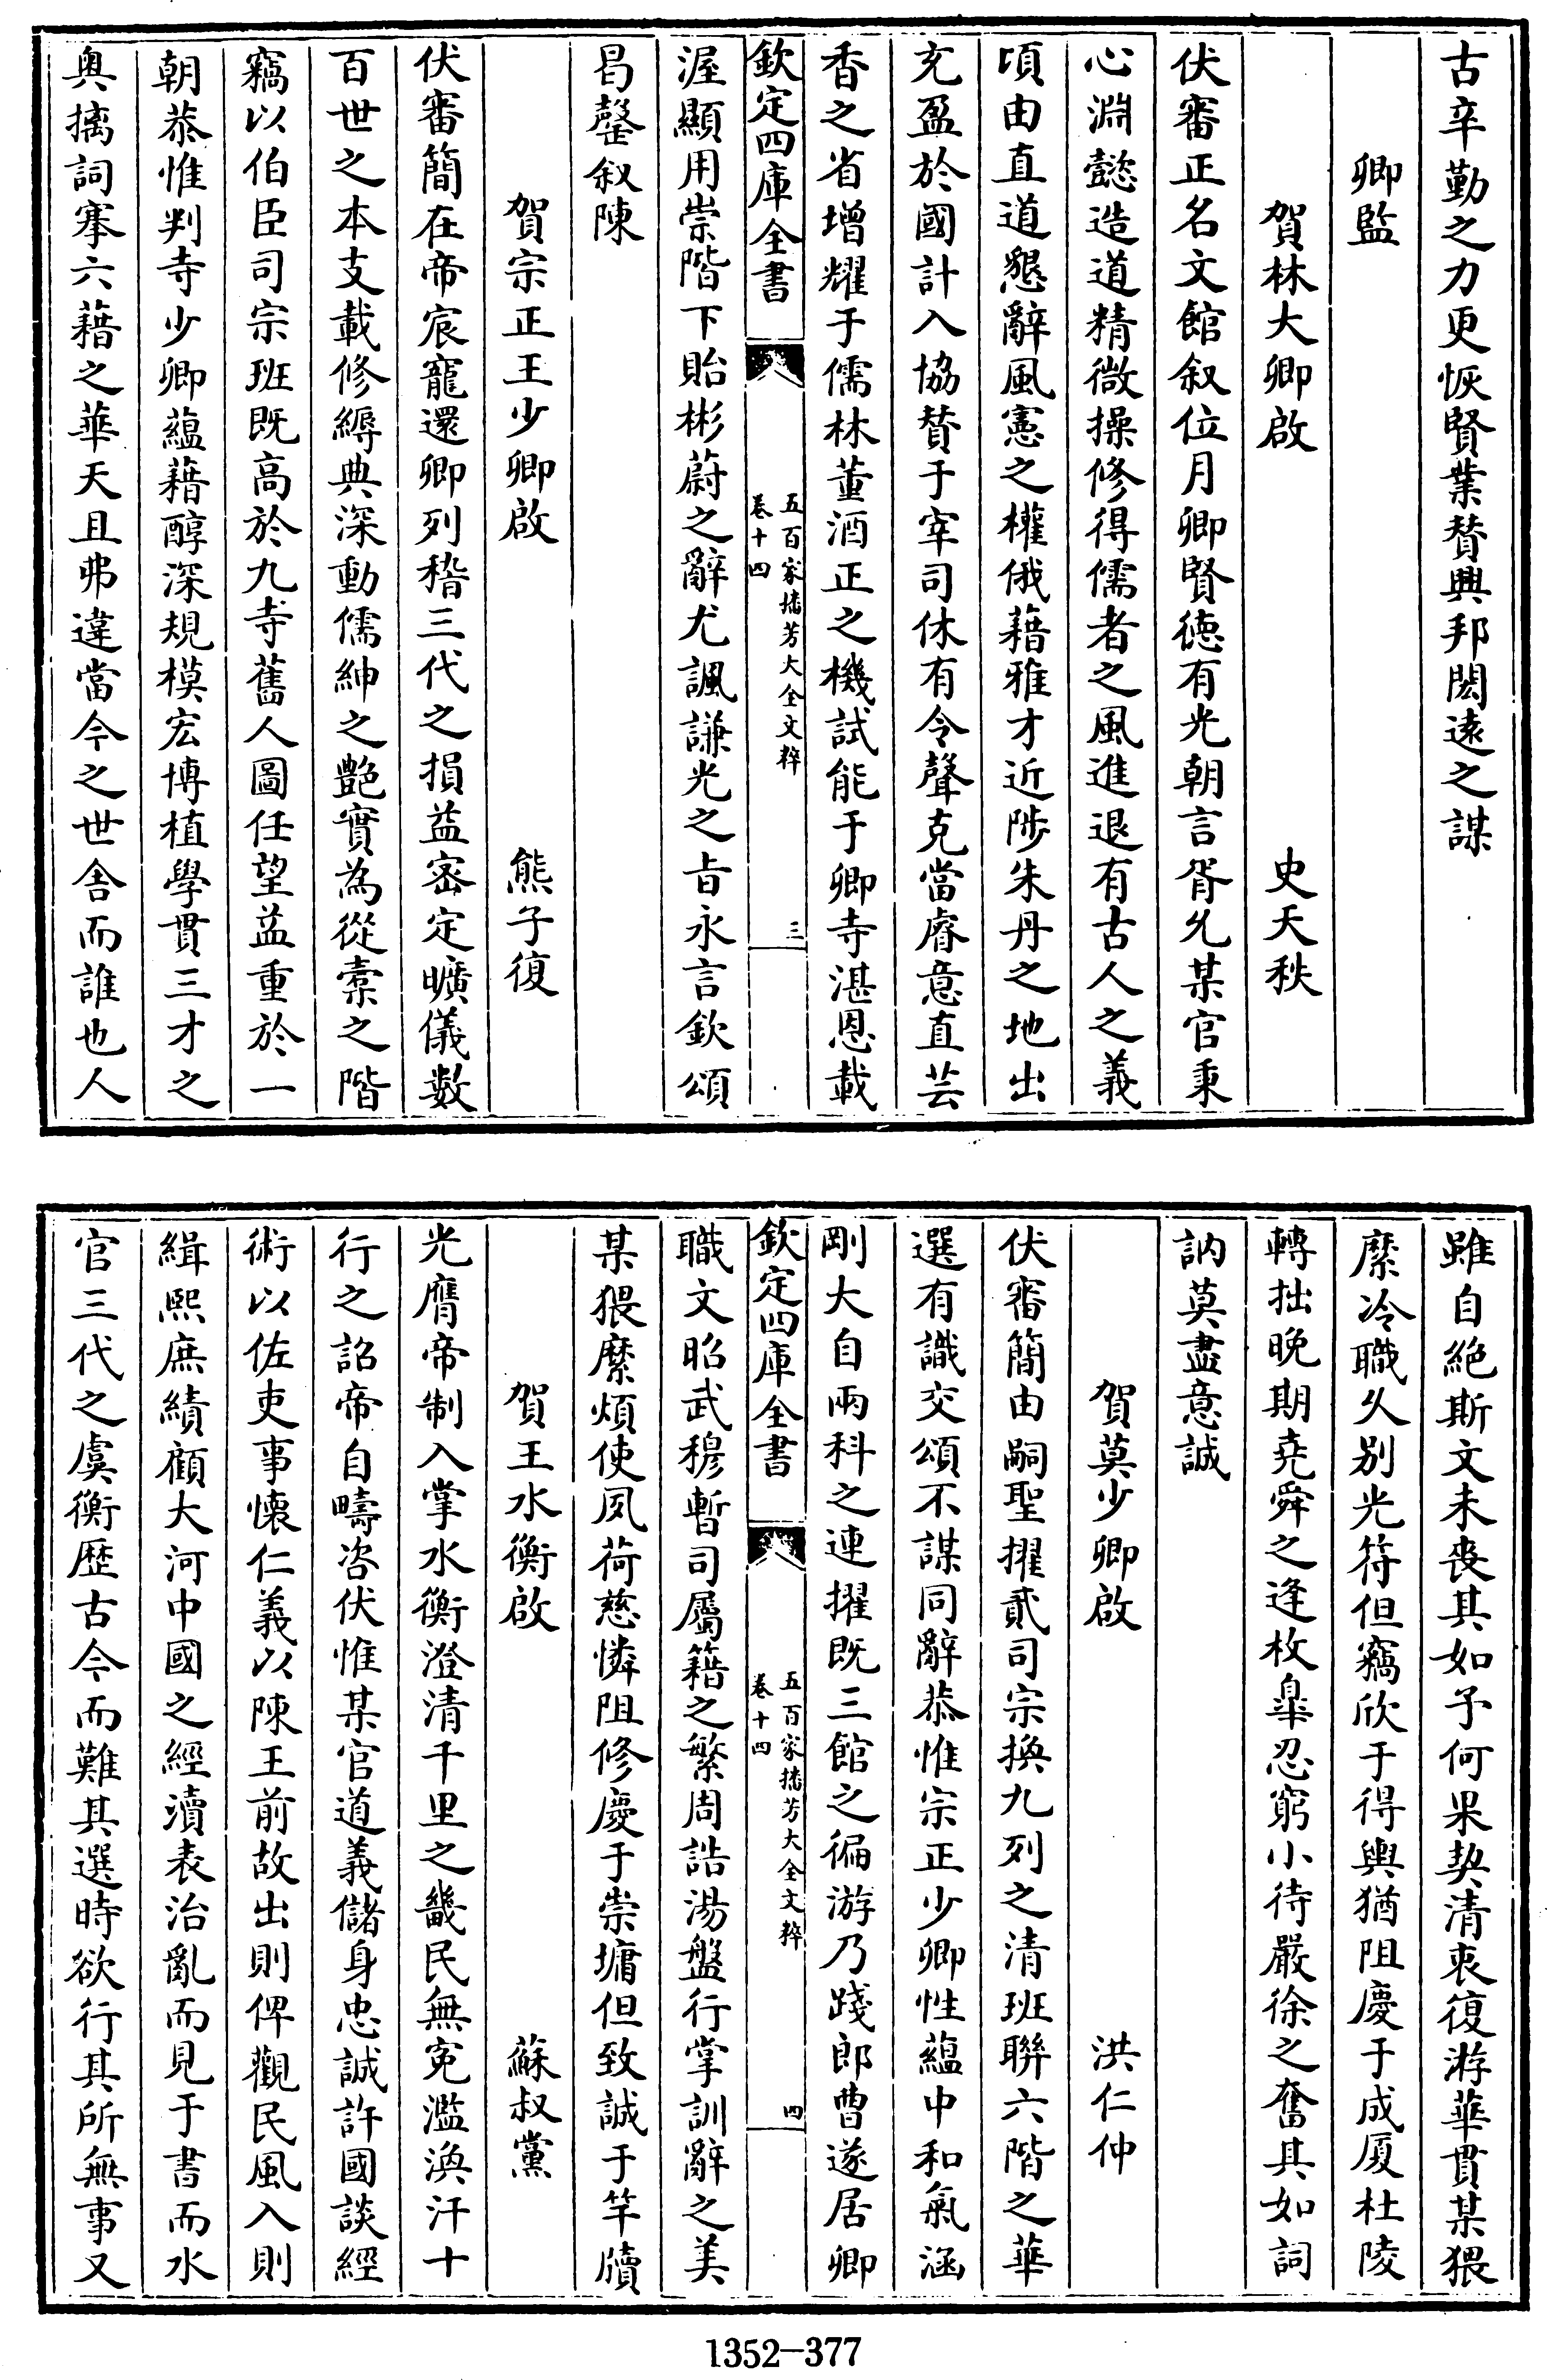 古辛勤之力更恢賢業賛興邦閎遠之謀
卿監
賀林大卿啟 史天秩
伏審正名文館叙位月卿賢徳有光朝言胥允某官秉
心淵懿造道精微操修得儒者之風進退有古人之義
頃由直道懇辭風憲之權俄藉雅才近陟朱丹之地出
充盈於國計入協賛于宰司休有令聲克當睿意直芸
香之省增耀于儒林董酒正之機試能于卿寺湛恩載
欽定四庫全書
五百家播芳大全文粹
卷十四
三
渥顯用崇階下貽彬蔚之辭尤諷謙光之㫖永言欽頌
曷罄叙陳
賀宗正王少卿啟 熊子復
伏審簡在帝宸寵還卿列稽三代之損益宻定曠儀數
百世之本支載修縟典深動儒紳之艶實為從橐之階
竊以伯臣司宗班既髙於九寺舊人圖任望益重於一
朝恭惟判寺少卿藴藉醇深規模宏博植學貫三才之
奥摛詞搴六藉之華天且弗違當今之世舍而誰也人
雖自絶斯文未喪其如予何果契清衷復游華貫某猥
縻冷職久別光符但竊欣于得輿猶阻慶于成厦杜陵
轉拙晚期堯舜之逢枚臯忍窮小待嚴徐之奮其如詞
訥莫盡意誠
賀莫少卿啟 洪仁仲
伏審簡由嗣聖擢貳司宗換九列之清班聯六階之華
選有識交頌不謀同辭恭惟宗正少卿性藴中和氣涵
剛大自兩科之連擢既三館之徧游乃踐郎曹遂居卿
欽定四庫全書
五百家播芳大全文粹
卷十四
四
職文昭武穆暫司屬籍之繁周誥湯盤行掌訓辭之美
某猥縻煩使夙荷慈憐阻修慶于崇墉但致誠于竿牘
賀王水衡啟 蘇叔黨
光膺帝制入掌水衡澄清千里之畿民無寃濫渙汗十
行之詔帝自疇咨伏惟某官道義儲身忠誠許國談經
術以佐吏事懐仁義以陳王前故出則俾觀民風入則
緝熙庶績顧大河中國之經瀆表治亂而見于書而水
官三代之虞衡歴古今而難其選時欲行其所無事又
1352-377